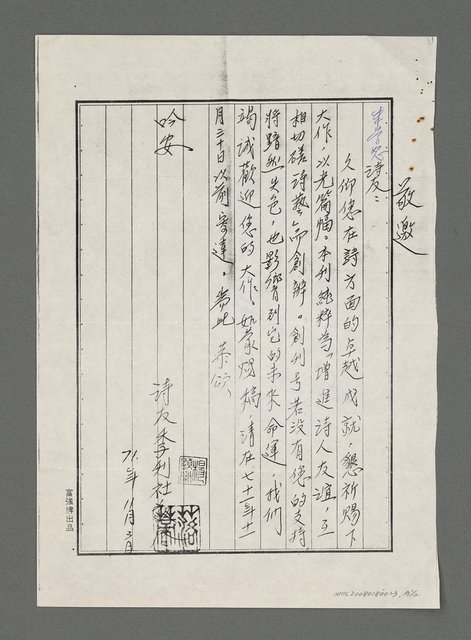 敬邀
詩友：
久仰您在詩方面的卓越成就，懇祈賜下
大作，以光篇幅。本刊純粹為「增進詩人友誼，互
相切磋詩藝」而創辦。創刊号若沒有您的支持，
將黯然失色，也影響到它的未來命運。我們
竭誠歡迎您的大作。如蒙賜稿，請在七十一年十一
月三十日以前寄達。耑此 恭頌
吟安
詩友季刊社
71年11月3日
富強牌出品